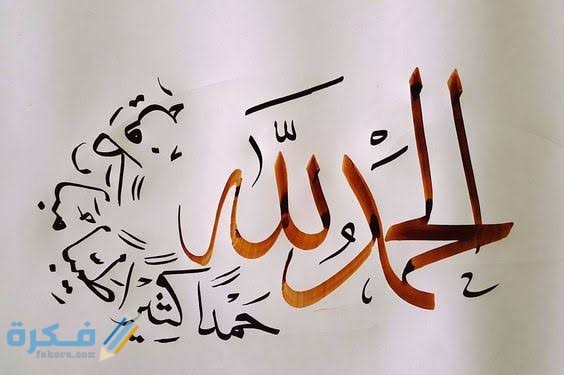 الحمد لله
حَمْدًا كَثِيْرًا طَيِّبًا مُبَارَكًا فِيهِ
فكرة
fekera.com